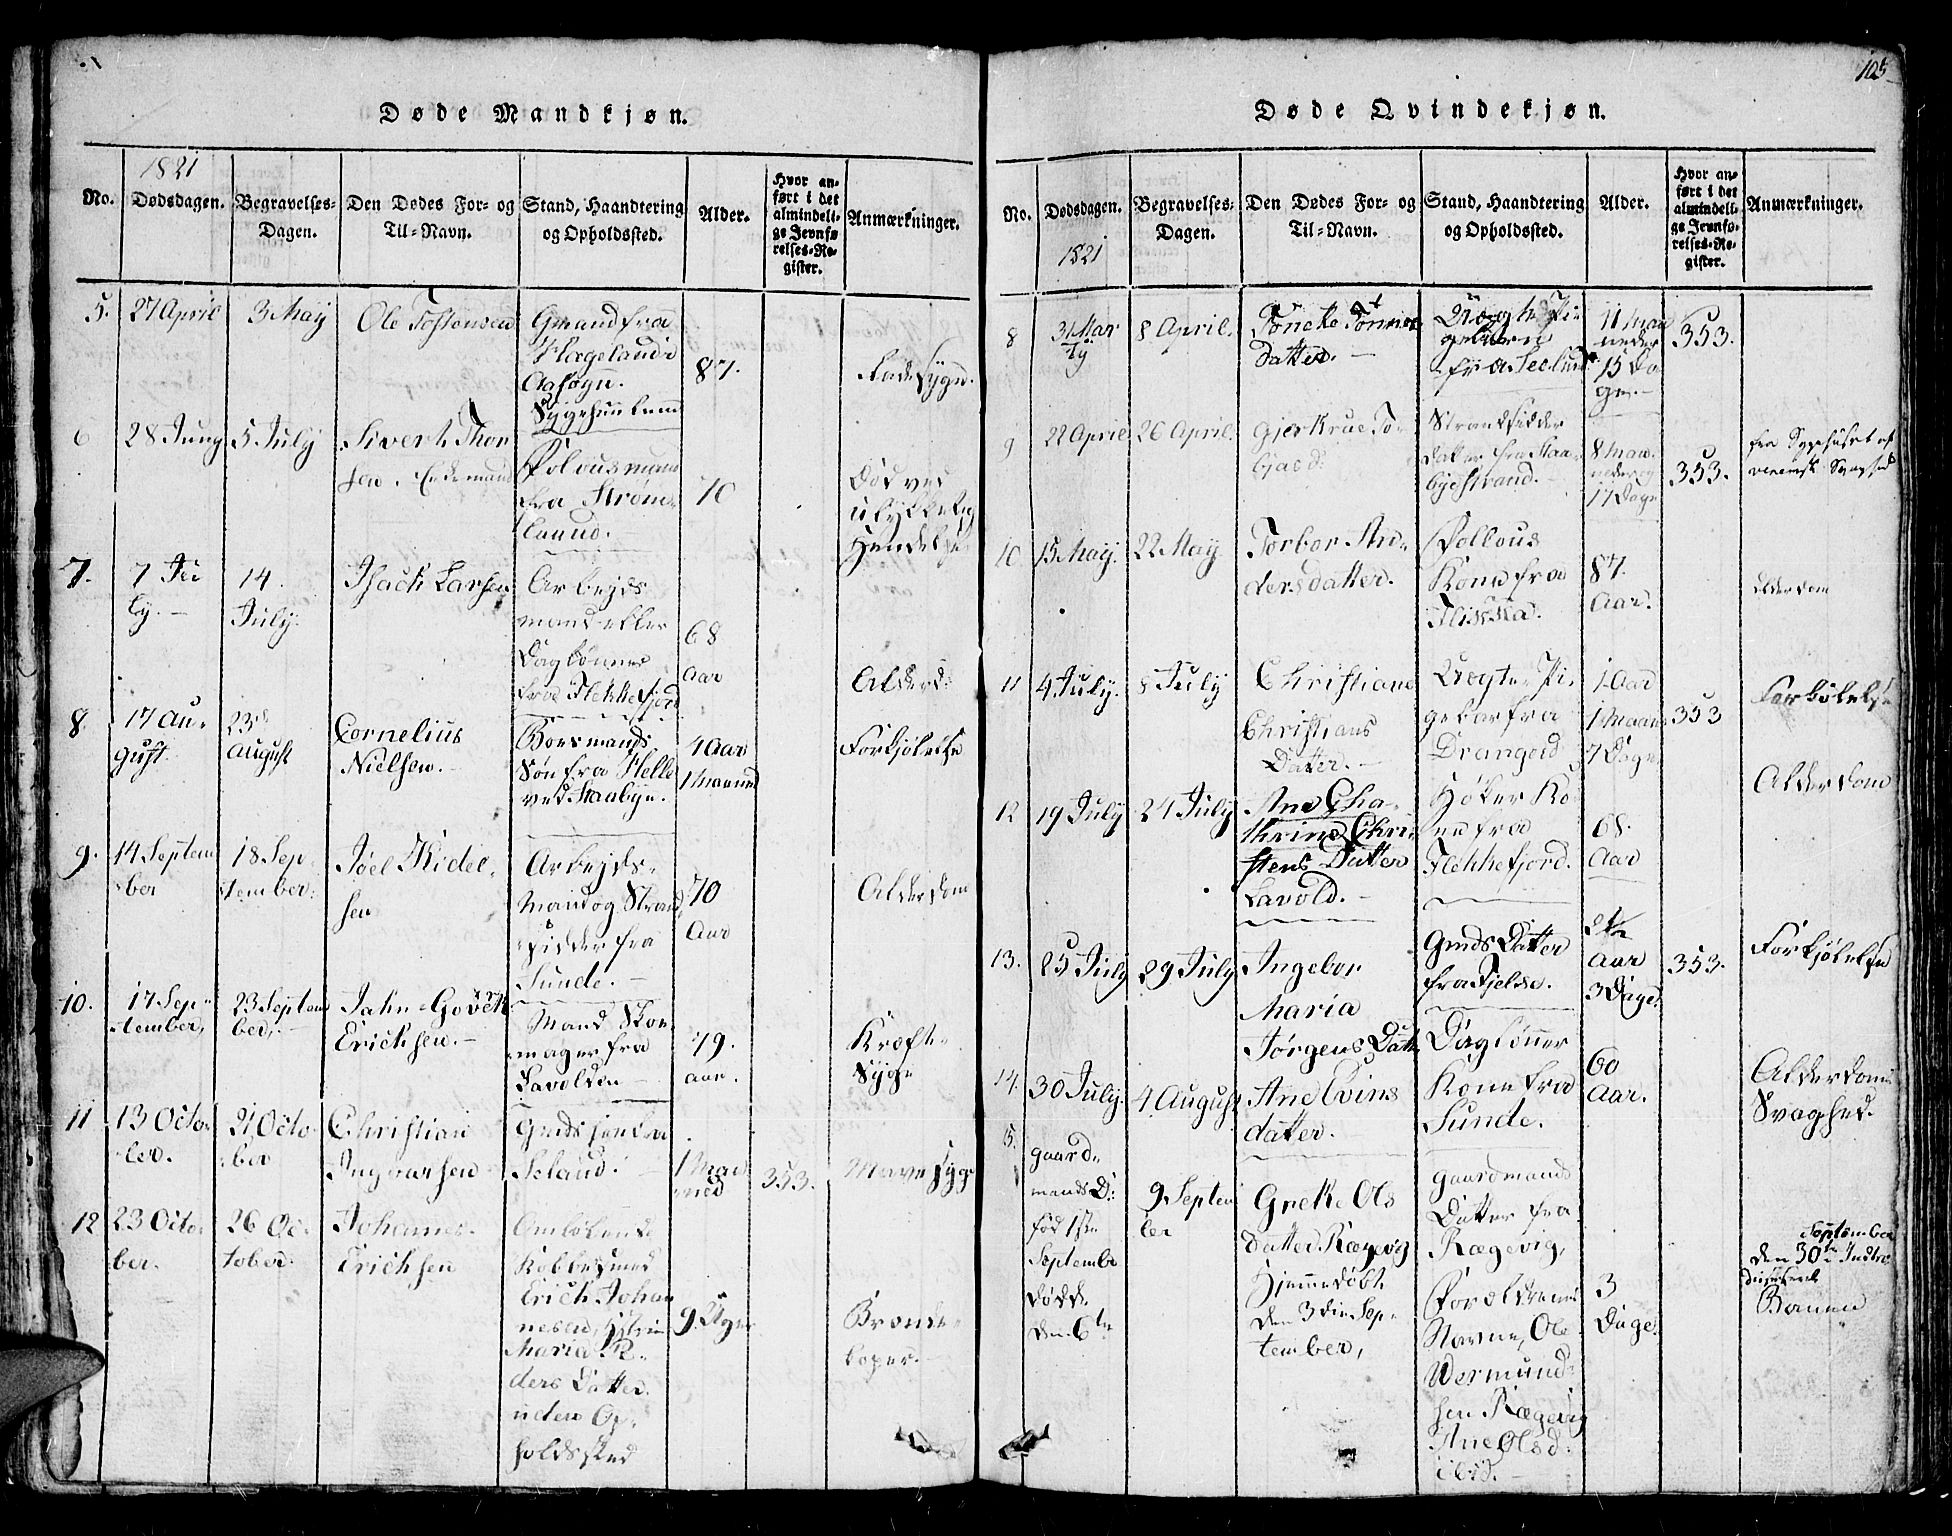 105
Døde Mandkjøn.
1821
No.
Dødsdagen.
Begravelses-
Dagen.
Den Dødes For- og
Til-Navn.
Stand, Haandtering
og Opholdssted.
Alder.
Hvor an-
ført i det
almindeli-
ge Jevnfø-
relses-Re-
gister.
Anmærkninger.
5.
27 April
3 May
Ole Tostensen
Gmand fra
Hægeland i
Aasogn.
Sygehuuslem
87.
RadeSygn.
6
28 Juny
5 July
Sivert Thor
sen. Enkemand
fra Strøm-
laand.
70
Død ved
ulykkelig
Hendelse
7.
7 Ju
ly.-
14.
July.
Isach Larsen
Arbeyds
mand eller
Daglønner
fra Flekkefjord
68
Aar
Alderd:
8.
17 Au-
gust.
23d
August
Cornelius
Nielsen.-
Boesmands
Søn fra Helle
ved Staabye.
4 Aar
1 Maaned
Forkjølelse
9.
14 Septem
ber
18 Sep-
tember.
Joel Kidel-
sen
Arbejds-
Mand og Strand
sidder fra
Sunde.-
70
Aar
Alderdom
10.
17 Sep-
tember,
23 Septem
ber,-
Jahn Govert
Erichsen.-
Mand Skoe-
mager fra
Lavolden-
79.
aar.
Kræft-
Syge
11
13 Octo-
ber.
21 Octo-
ber
Christian
Ingvarsen
Gmds søn fra
Seland.
1 Maa
ned
353.
Mave syge
12
23 Octo-
ber.
26 Oc-
tober.
Johannes
Erichsen
Omløbende
Kobbesmed
Erich Johan
nesen,
Maria
ders Datter.
uden Op-
holdssted
9. Uger
Bronde-
koper.-
Døde Qvindekjøn.
No.
Dødsdagen.
1821
Begravelses-
Dagen.
Den Dødes For- og
Til-Navn.
Stand, Haandtering
og Opholdssted.
Alder.
Hvor an-
ført i det
almindeli-
ge Jevnfø-
relses-Re-
gister.
Anmærkninger.
8
31 Mar
ty
8 April.
Tønneke Tønnes
datter.-
Uægte Pi-
gebarn
fra Seeland
11 Maa
neder
15 Da
ge.-
353.
9
22 April
26 April.
Gjertrue To-
bjasd:
Strandsidder
datter fra Staa-
byestrand.-
8 Maa-
neder og
17 Dage
353.
fra Sygehuset af
venerisk Svaghed
10
15 May.
22 May
Torbor An-
dersdatter.
Kone fra
87.
Aar.
Alderdom
11
4 July.
8 July
Christiane
Christians
Datter.-
Uægte Pi-
gebar fra
Drangeid
1 Aar
1 Maan
7 Dage
353
Forkølelse
12
19 July
24 July
Ane Cha-
thrine Chri-
stens Datter
Lavold.-
Høker Ko-
ne fra
Flekkefjord.
68.
Aar
Alderdom
13.
25 July
29 July
Ingebor
Maria
Jørgens Datt
Gmds Datter
fra Fjelse.
2 1/2
Aar
3 Dage.
353.
Forkjølelse
14.
30 July.
4 August
Ane Evins
datter.
Daglønner
Kone fra
Sunde.
60
Aar.
Alderdoms
Svaghed.
15.
gaard-
mands D:
fød 1ste
September
døde
den 6te
9 Septem
ber
Grethe Ols
datter Rægevig
Hjemmedøbt
den 3die Sep-
tember,
gaardmands
Datter fra
Rægevig,
Forældrenes
Navne, Ole
Wermund-
sen Rægevig
Ane Olsd:
ibid.-
3
Dage.
September
den 30te Intro
duseret
Konen